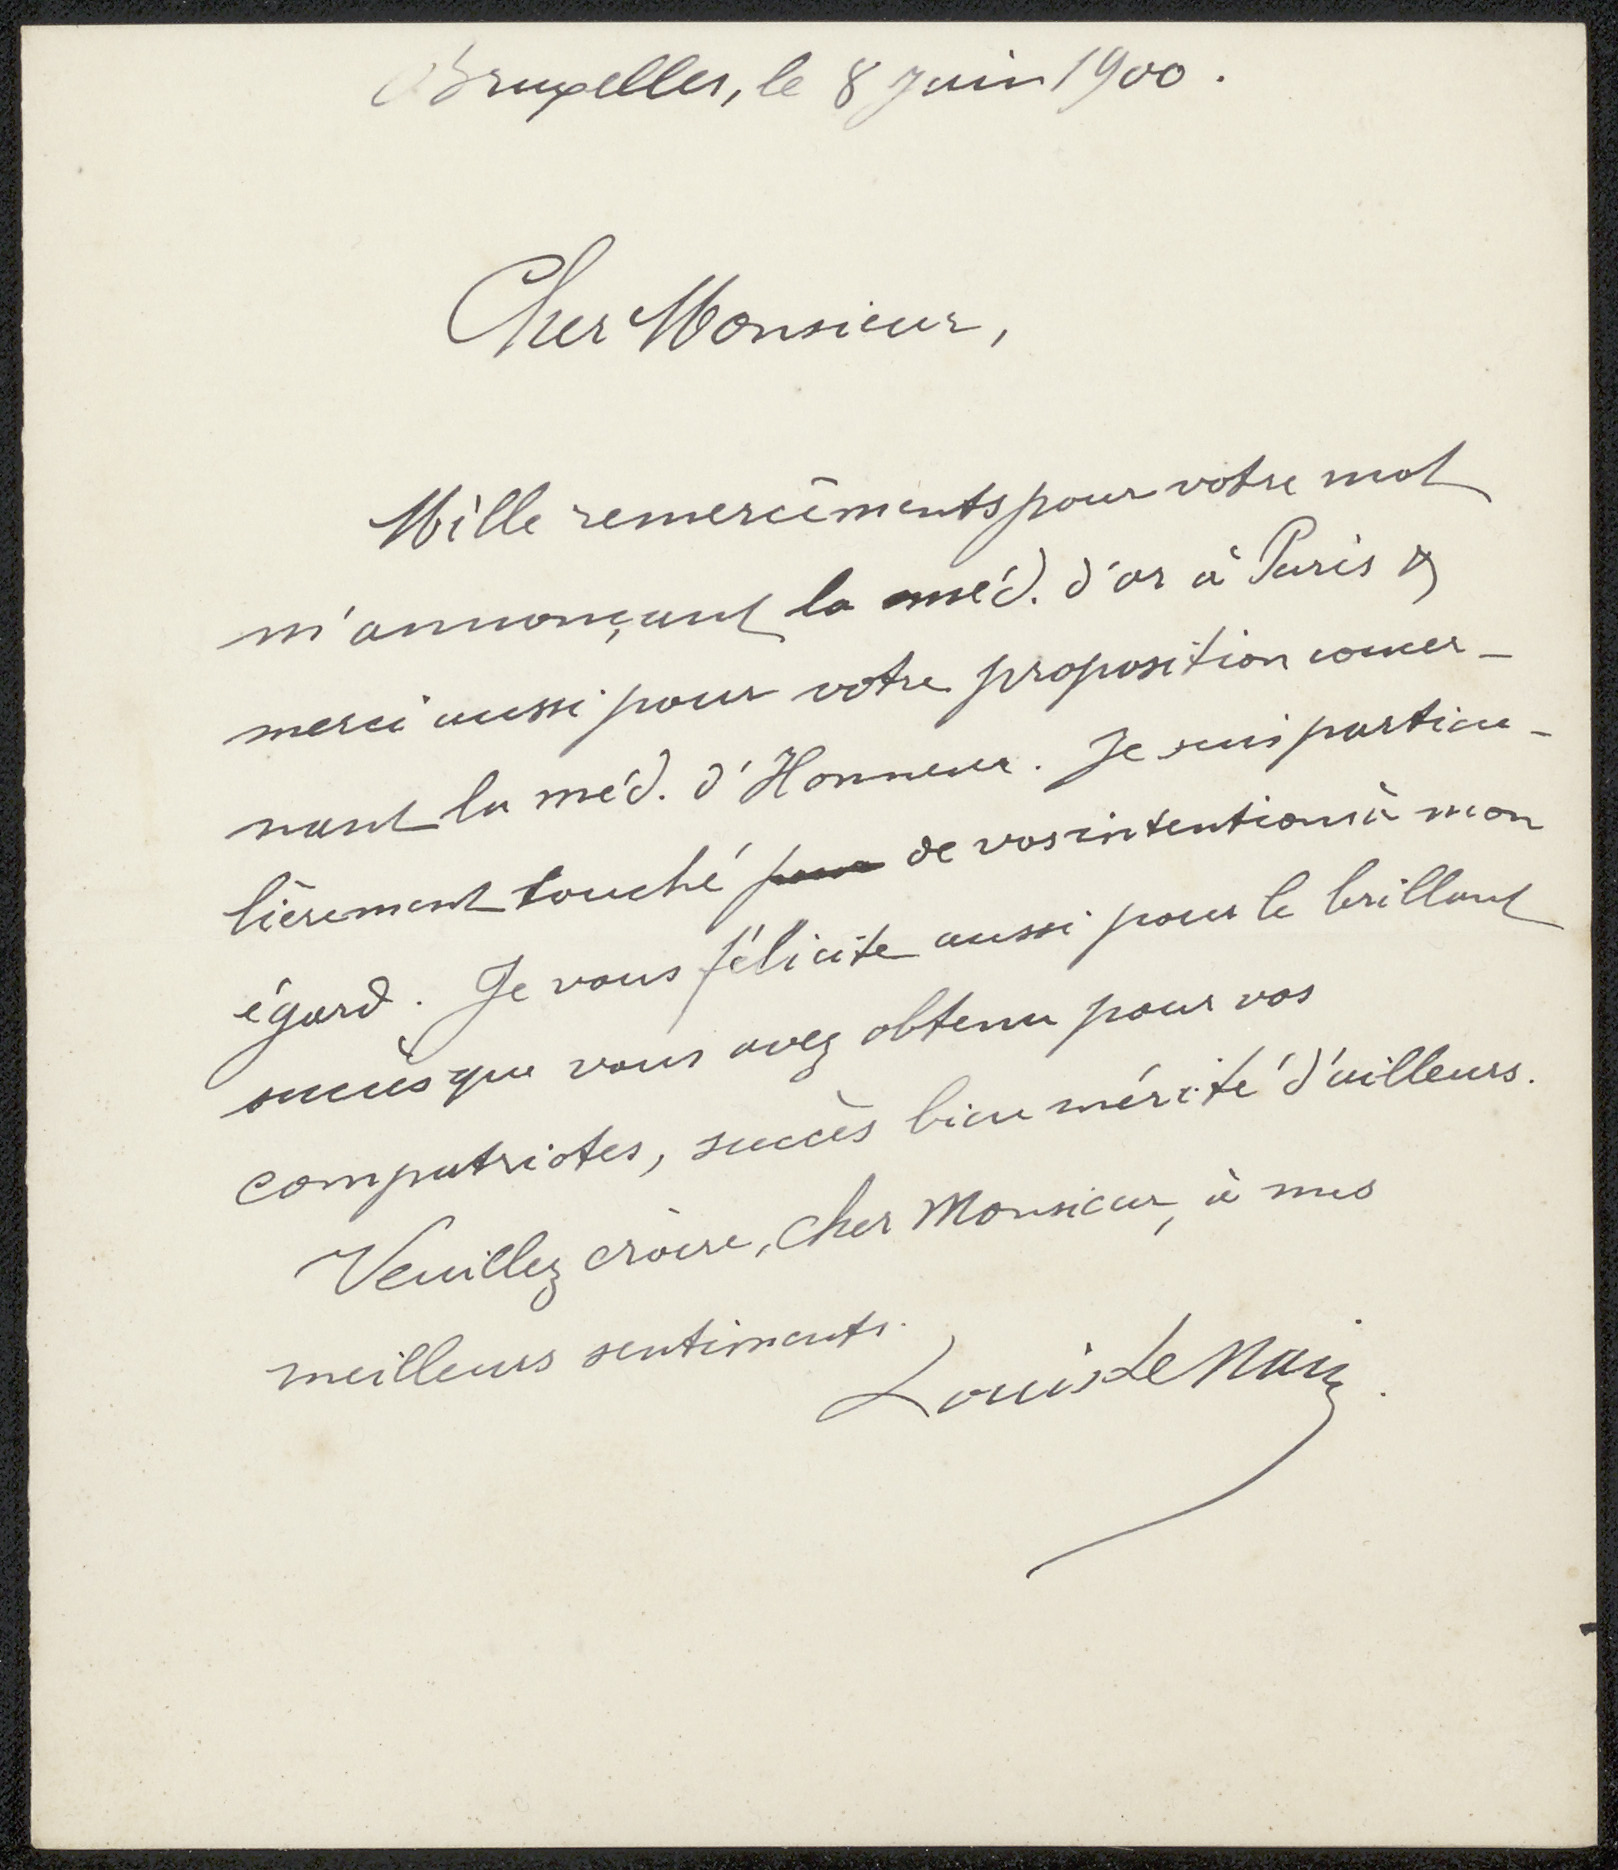 Bruxelles, le 8 Juin 1900.
Cher Monsieur,
Mille remercîments pour votre mot
m'annonçant la méd. d'or à Paris &
merci aussi pour votre proposition concer-
nant la méd. d'Honneur. Je suis particu-
lièrement touché pour de vos intentions à mon
égard. Je vous félicite aussi pour le brillant
succès que vous avez obtenu pour vos
compatriotes, succès bien mérité d'ailleurs.
Veuillez croire, cher Monsieur, à mes
meilleurs sentiments.
Louis Le Nain.